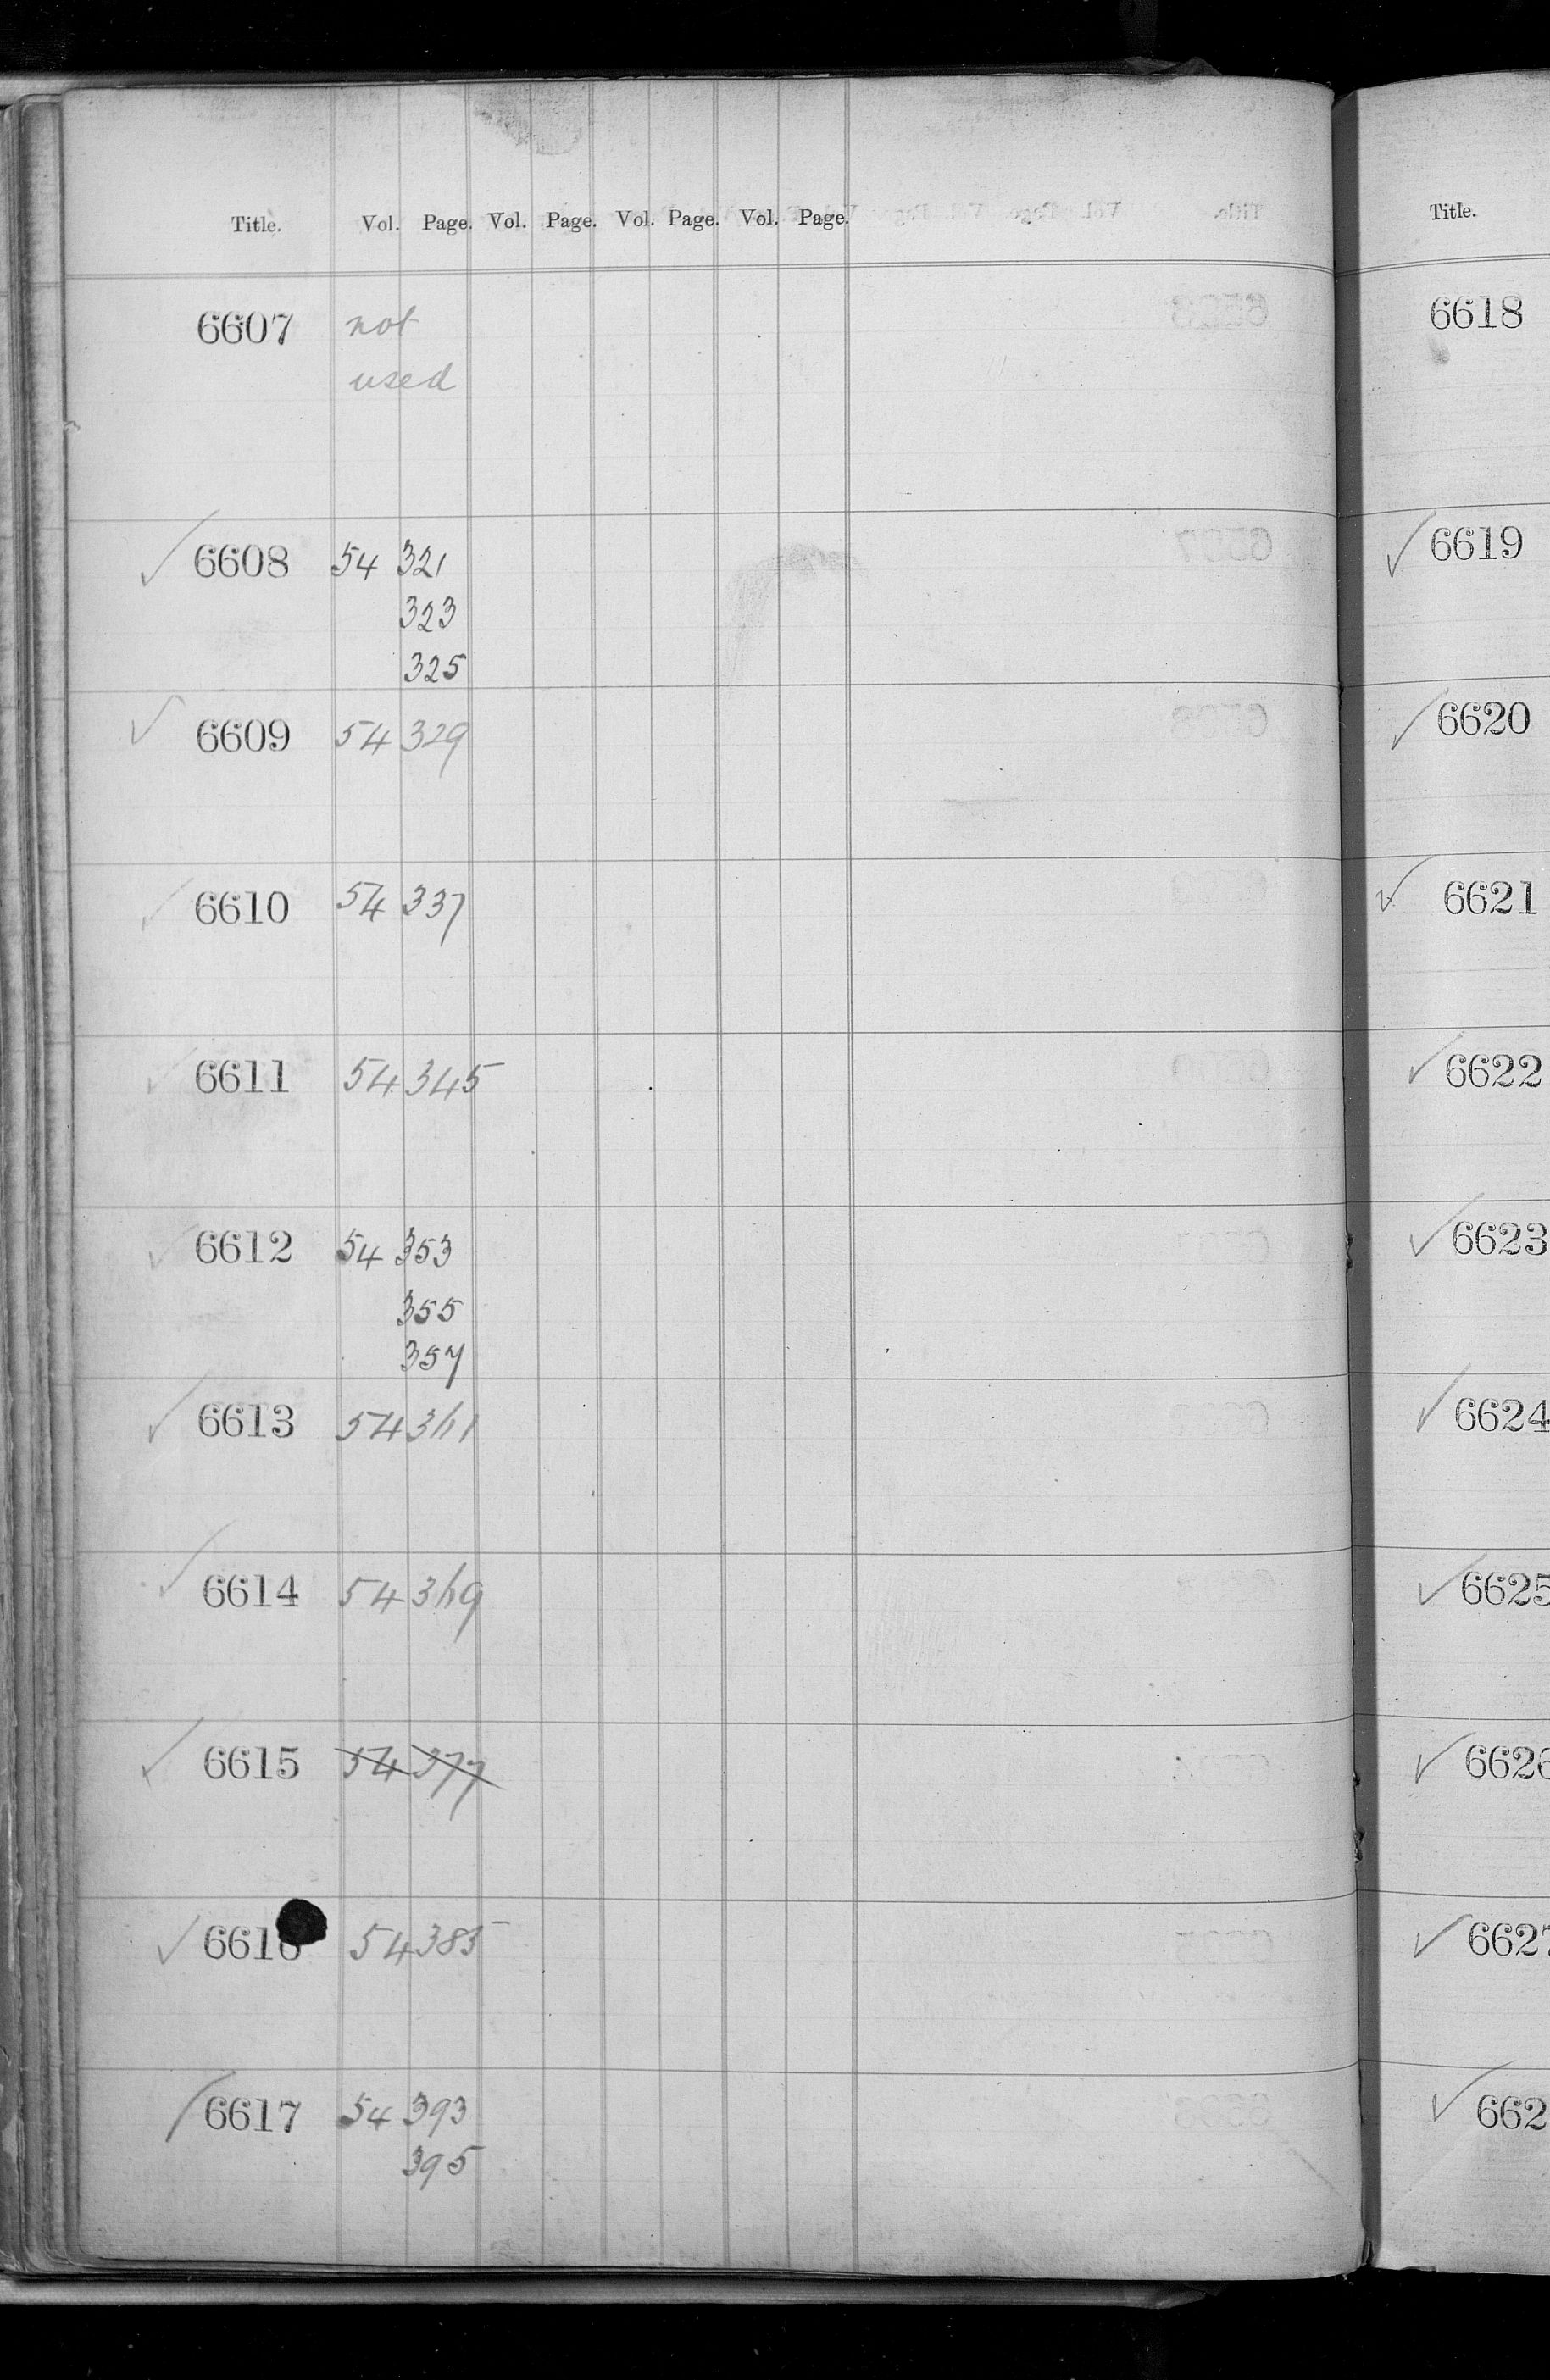 Title. Vol. Page. Vol. Page. Vol. Page. Vol. Page.
6607 not
used
✓ 6608 54 321
323
325
✓ 6609 54 329
✓ 6610 54 337
✓ 6611 54 345
✓ 6612 54 353
355
357
✓ 6613 54 361
✓ 6614 54 369
✓ 6615 54 377
✓ 6616 54 385
/ 6617 54 393
395
Title.
6618
✓ 6619
✓ 6620
✓ 6621
✓ 6622
✓ 6623
✓ 6624
✓ 6625
✓ 6626
✓ 6627
✓ 662